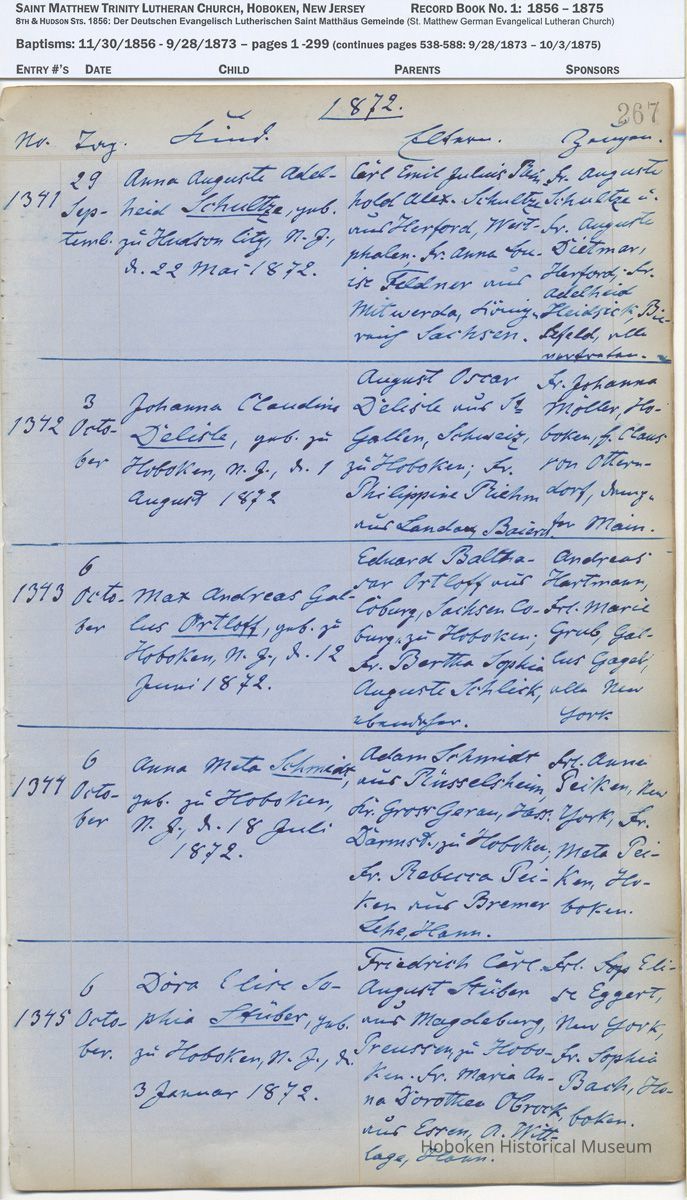 SAINT MATTHEW TRINITY LUTHERAN CHURCH, HOBOKEN, NEW JERSEY RECORD BOOK NO. 1: 1856 – 1875
8TH & HUDSON STS. 1856: Der Deutschen Evangelisch Lutherischen Saint Matthäus Gemeinde (St. Matthew German Evangelical Lutheran Church)
Baptisms: 11/30/1856 - 9/28/1873 – pages 1 -299 (continues pages 538-588: 9/28/1873 – 10/3/1875)
ENTRY #'S DATE CHILD PARENTS SPONSORS
1872.
267
No. Tag. Kind. Eltern. Zeugen.
1341
29
Sep-
temb.
Anna Auguste Adel-
heid Schultze, geb.
zu Hudson City, N. J.,
d. 22 Mai 1872.
Carl Emil Julius Rein-
hold Alex. Schultze
aus Herford, West-
phalen. Fr. Anna Lu-
ise Feldner aus
Mitwerda, König-
reich Sachsen.
Fr. Auguste
Schultze u.
Fr. Auguste
Dietmar,
Herford, Fr.
Adelheid
Heidsick, Bie-
lefeld, alle
vertreten.
1342
3
Octo-
ber
Johanna Claudine
Delisle, geb. zu
Hoboken, N. J., d. 1
August 1872
August Oscar
Delisle aus St.
Gallen, Schweiz,
zu Hoboken; Fr.
Philippine Riehm
aus Landau, Baiern.
Fr. Johanna
Möller, Ho-
boken, f. Claus
von Ottern-
dorf,
Main.
1343
6
Octo-
ber
Max Andreas Gal-
lus Ortloff, geb. zu
Hoboken, N. J., d. 12
Juni 1872.
Eduard Baltha-
sar Ortloff aus
Coburg, Sachsen Co-
burg, zu Hoboken;
Fr. Bertha Sophia
Auguste Schlick,
ebendaher.
Andreas
Hartmann,
Frl. Marie
Grub, Gal-
lus Gagel,
alle New
York
1344
6
Octo-
ber
Anna Meta Schmidt,
geb. zu Hoboken,
N. J., d. 18 Juli
1872.
Adam Schmidt
aus Rüsselsheim,
Kr. Gross Gerau, Hess.
Darmst., zu Hoboken,
Fr. Rebecca Pei-
ken aus Bremer
Lehe, Hann.
Frl. Anna
Peiken, New
York, Fr.
Meta Pei-
ken, Ho-
boken.
1345
6
Octo-
ber.
Dora Elise So-
phia Stüber, geb.
zu Hoboken, N. J., d.
3 Januar 1872.
Friedrich Carl
August Stüber
aus Magdeburg,
Preussen, zu Hobo-
ken. Fr. Maria An-
na Dorothea Obrock,
aus Essen, A. Witt-
lage, Hann.
Frl. Eli-
se Eggert,
New York,
Fr. Sophia
Bach, Ho-
boken.
Hoboken Historical Museum